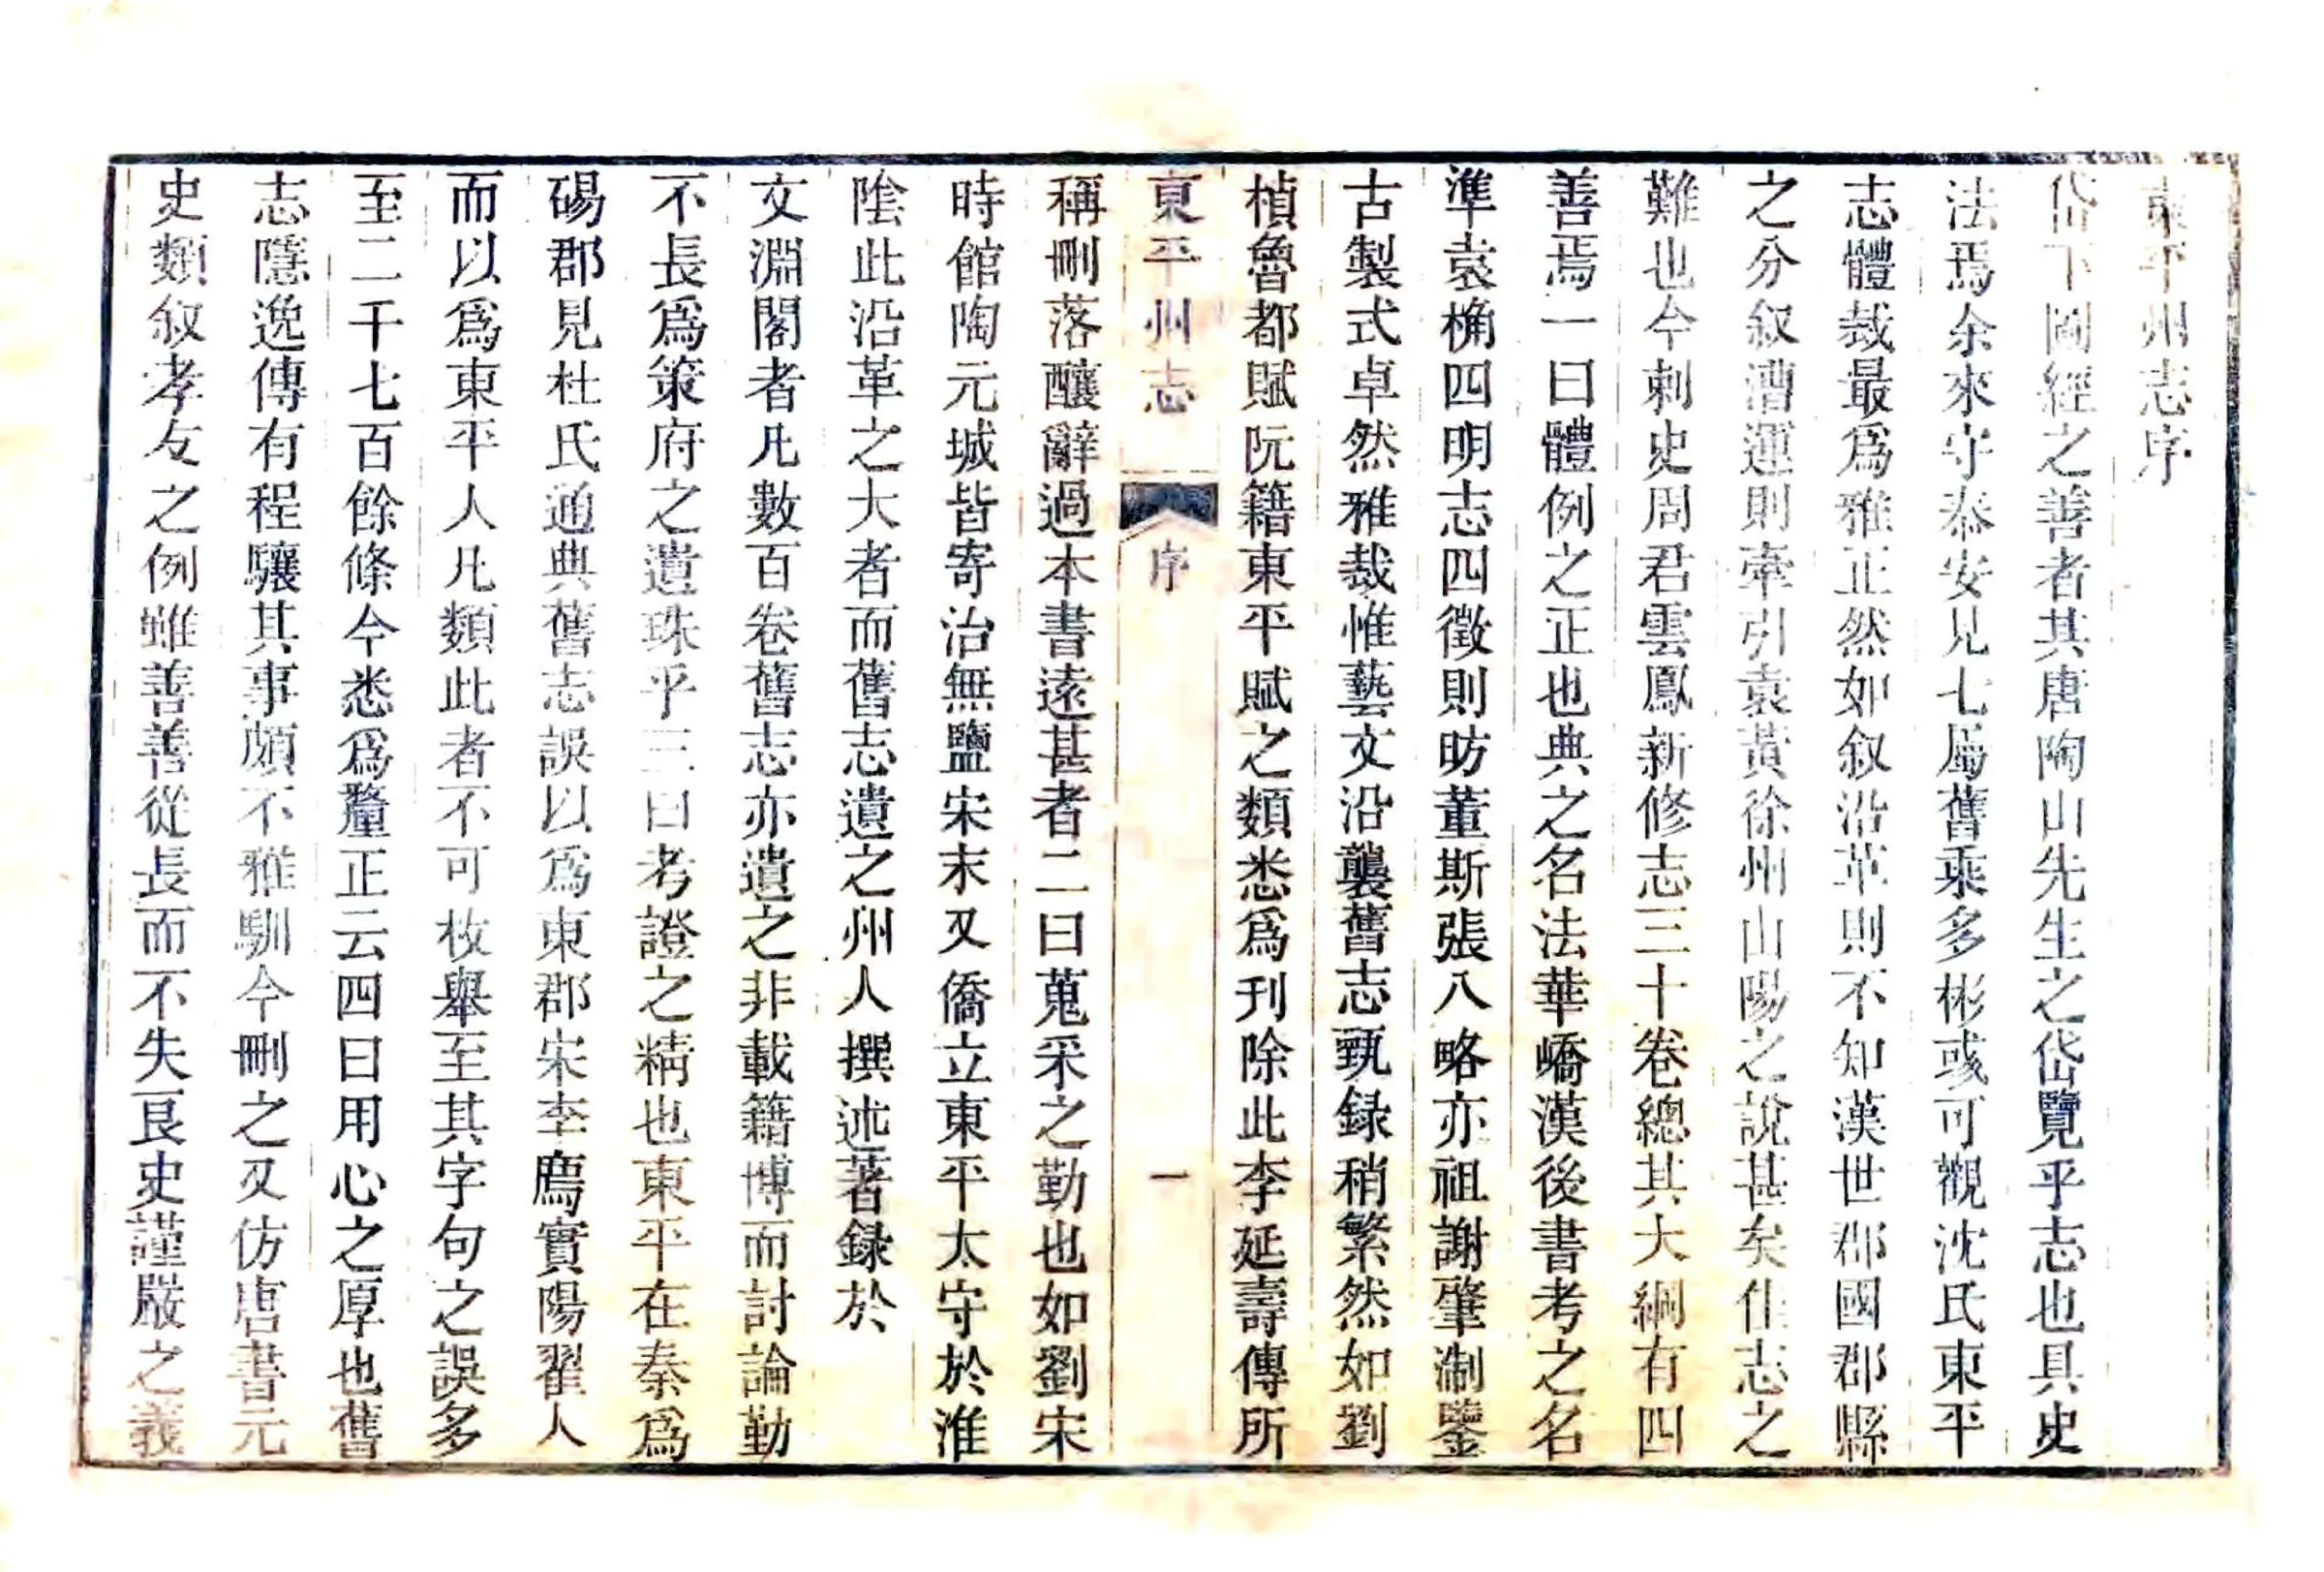 東平州志序
岱下圖經之善者其唐陶山先生之岱覽乎志也具史
法焉余來守泰安見七屬舊乘多彬彧可觀沈氏東平
志體裁最爲雅正然如叙沿革則不知漢世郡國郡縣
之分叙漕運則牽引袁黃徐州山陽之說甚矣作志之
難也今刺史周君雲鳳新修志三十卷總其大綱有四
善焉一曰體例之正也典之名法華嶠漢後書考之名
準袁桷四明志四徵則昉董斯張八略亦祖謝肇淛鑒
古製式卓然雅裁惟藝文沿襲舊志甄録稍繁然如劉
楨魯都賦阮籍東平賦之類悉爲刊除此李延壽傳所
東平州志
序
一
稱刪落釀辭過本書遠甚者二曰蒐采之勤也如劉宋
時館陶元城皆寄治無鹽宋末又僑立東平太守於淮
陰此沿革之大者而舊志遺之州人撰述著録於
文淵閣者凡數百卷舊志亦遺之非載籍博而討論勤
不長爲策府之遺珠乎三曰考證之精也東平在秦爲
碭郡見杜氏通典舊志誤以爲東郡宋李廌實陽翟人
而以爲東平人凡類此者不可枚舉至其字句之誤多
至二千七百餘條今悉爲釐正云四曰用心之厚也舊
志隱逸傳有程驤其事頗不雅馴今刪之又仿唐書元
史類叙孝友之例雖善善從長而不失良史謹嚴之義